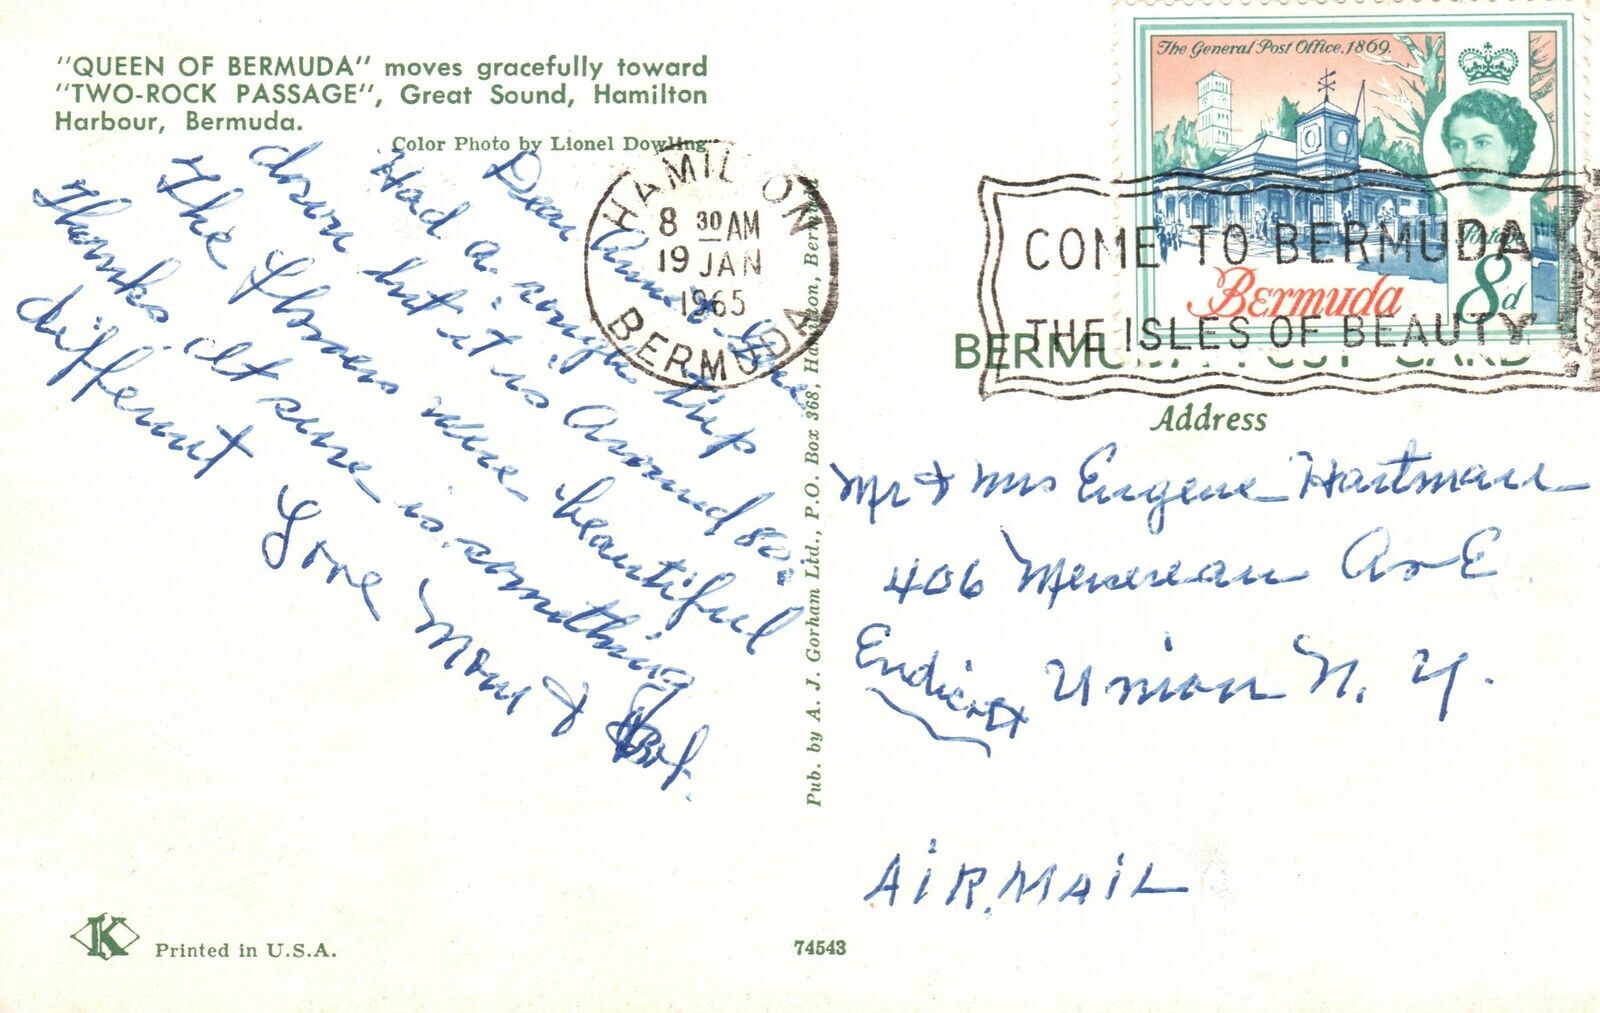 "QUEEN OF BERMUDA" moves gracefully toward
"TWO-ROCK PASSAGE", Great Sound, Hamilton
Harbour, Bermuda.
Color Photo by Lionel Dowling
Dear
Had a rough trip
down but it is around 80°
The flowers were beautiful
Thanks. It sure is something
different
Love Mom &
Pub. by A. J. Gorham Ltd., P.O. Box 368, Hamilton, Bermuda
HAMILTON
8 30 AM
19 JAN
1965
BERMUDA
The General Post Office, 1869.
Postage
8d
Bermuda
COME TO BERMUDA
THE ISLES OF BEAUTY
BERMUDA POST CARD
Address
Mr & Mrs Eugene Hartman
406 Av E
Endicott Union N. Y.
AIR MAIL
K Printed in U.S.A.
74543